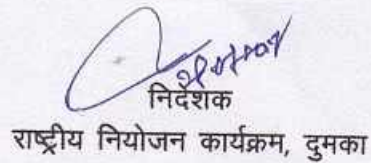 निदेशक
राष्ट्रीय नियोजन कार्यक्रम, दुमका